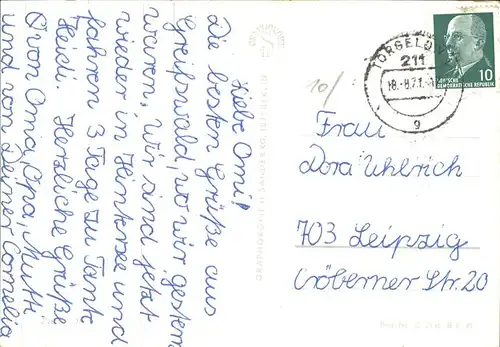 Liebe Omi!
Die besten Grüße aus
Greifswald, wo wir gestern
waren, wir sind jetzt
wieder in Hintersee und
fahren 3 Tage zu Tante
Heidi. Herzliche Grüße
v. von Oma, Opa, Mutti
und von Deiner Cornelia
GRAPHOKOPIE H. SANDER KG,
BERLIN
10/
TORGELOW
211
18.-8.71.
g
DEUTSCHE
DEMOKRATISCHE REPUBLIK
10
Frau
Dora Uhlrich
703 Leipzig
Cröberner Str. 20